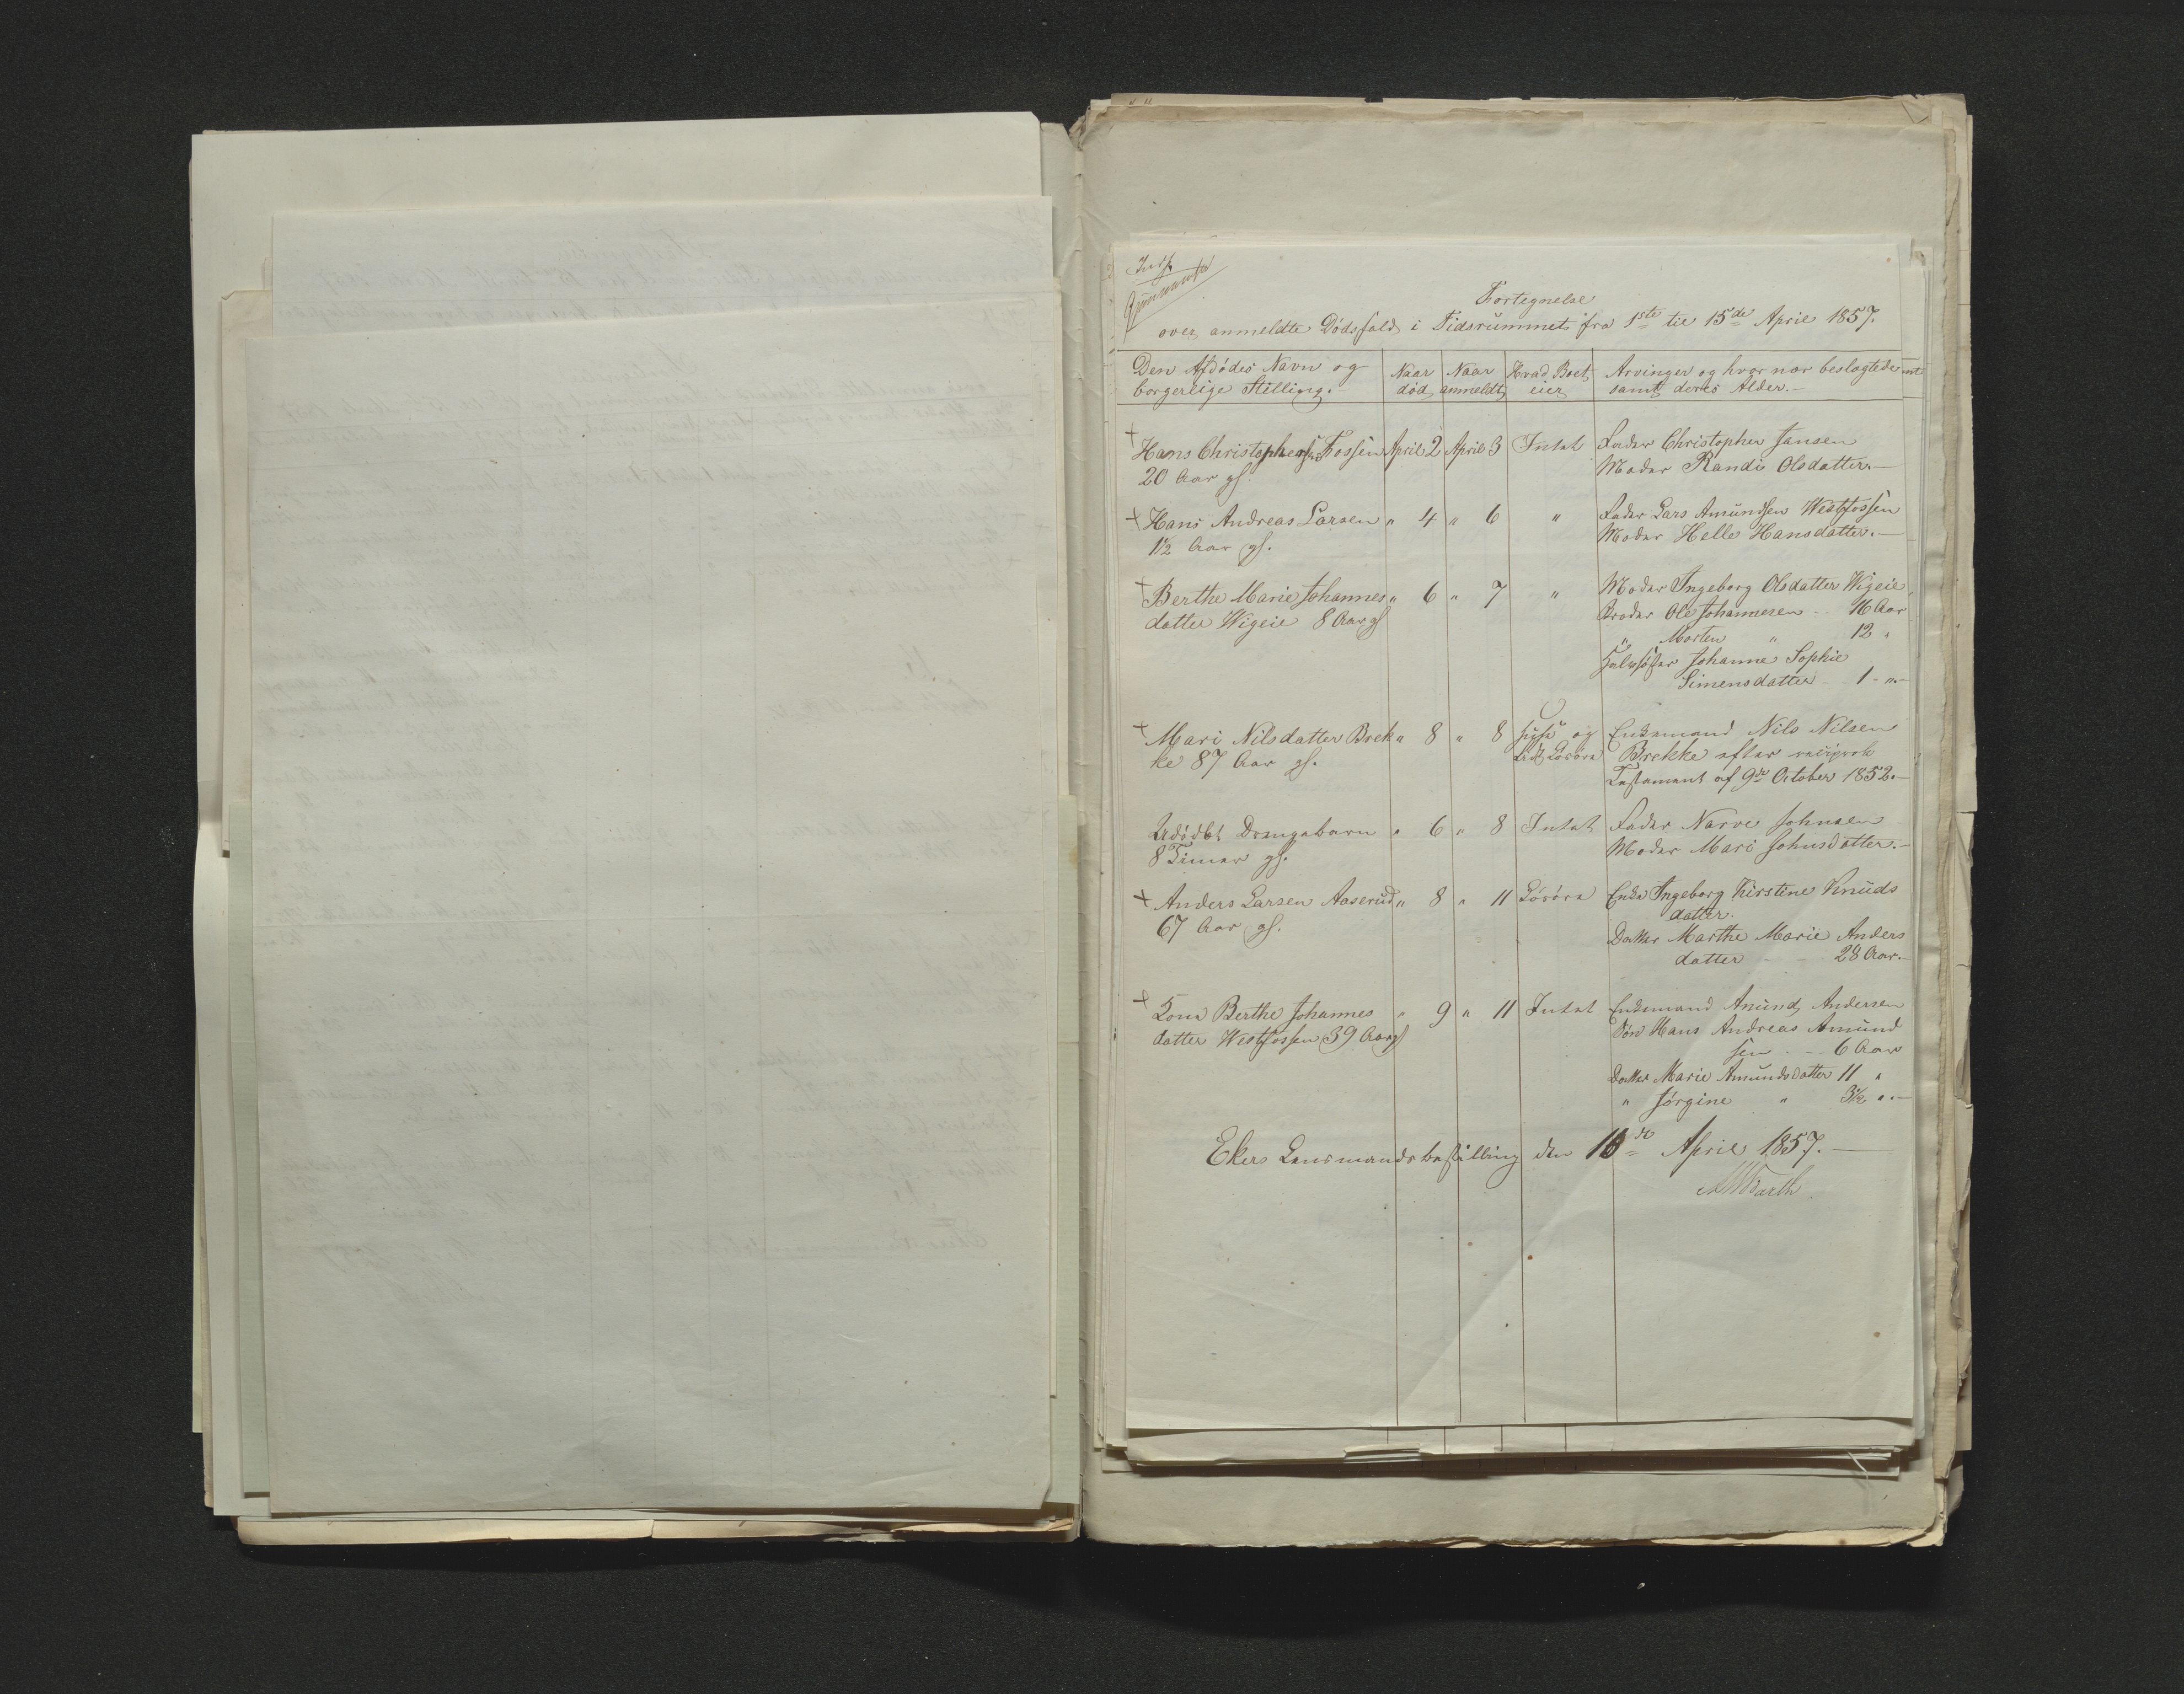 Fortegnelse
over anmeldte Dödsfald i Tidsrummet fra 1ste til 15de April 1857.
Den Afdödes Navn og borgerlige Stilling. Naar död Naar anmeldt Hvad Boet eier Arvinger og hvor nær beslægtede samt deres Alder.—
+ Hans Christophersen Fossen April 2 April 3 Intet Fader Christopher Jansen
20 Aar gl. Moder Randi Olsdatter.—
+ Hans Andreas Larsen " 4 " 6 " Fader Lars Amundsen Westfossen
1 1/2 Aar gl. Moder Helle Hansdatter.—
+ Berthe Marie Johannes " 6 " 7 " Moder Ingeborg Olsdatter Wigeie
datter Wigeie 8 Aar gl Broder Ole Johannesen - - 16 Aar
" Morten " 12 "
Halvsöster Johanne Sophie
Simensdatter - 1 - ".—
+ Mari Nilsdatter Brek " 8 " 8 Huse og Enkemand Nils Nilsen
ke 87 Aar gl. lidt Lösöre Brekke efter reciprok
Testament af 9de October 1852.—
Udöbt Drengebarn " 6 " 8 Intet Fader Narve Johnsen
8 Timer gl. Moder Mari Johnsdatter.—
+ Anders Larsen Aaserud " 8 " 11 Lösöre Enke Ingeborg Kirstine Knuds
67 Aar gl. datter.
Datter Marthe Marie Anders
datter - - 28 Aar.—
+ Kone Berthe Johannes " 9 " 11 Intet Enkemand Amund Andersen
datter Westfossen 39 Aar gl Sön Hans Andreas Amund
sen - - 6 Aar
Datter Marie Amundsdatter 11 "
" Jörgine " 3 1/2 ".—
Ekers Lensmandsbestilling den 16de April 1857.—